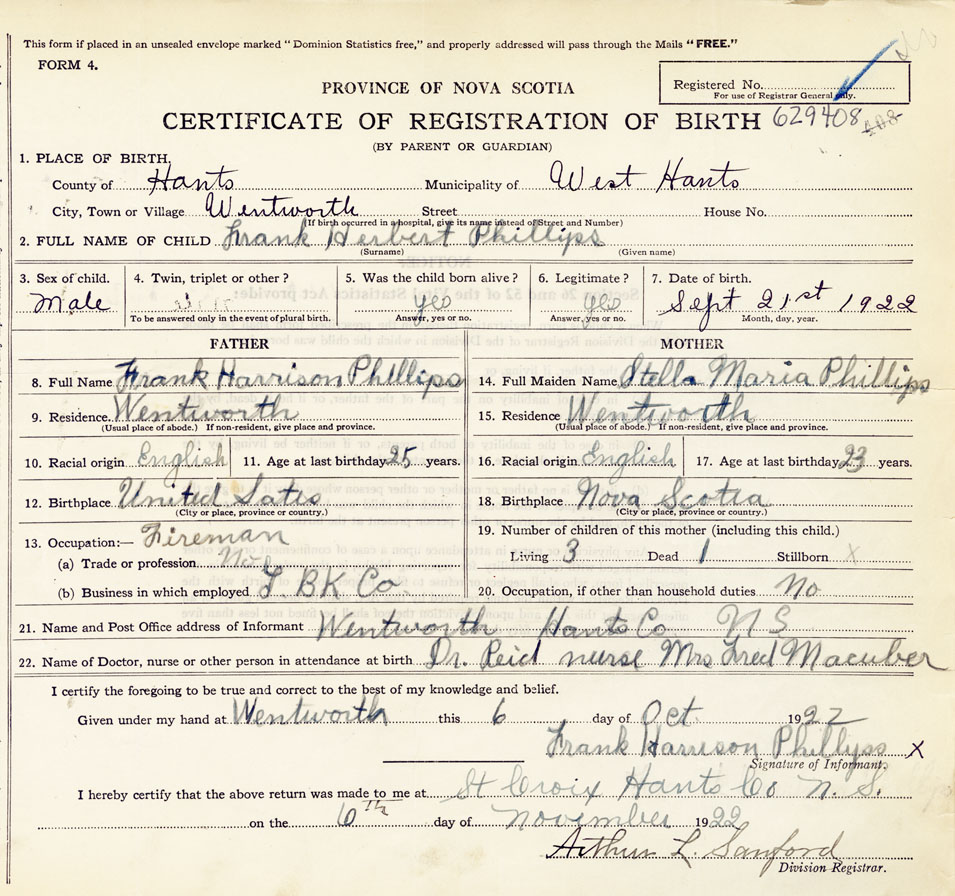 This form if placed in an unsealed envelope marked "Dominion Statistics free," and properly addressed will pass through the Mails "FREE."
FORM 4.
Registered No.
For use of Registrar General only.
PROVINCE OF NOVA SCOTIA
CERTIFICATE OF REGISTRATION OF BIRTH 629408 408
(BY PARENT OR GUARDIAN)
1. PLACE OF BIRTH,
County of Hants Municipality of West Hants
City, Town or Village Wentworth Street House No.
(If birth occurred in a hospital, give its name instead of Street and Number)
2. FULL NAME OF CHILD Frank Herbert Phillips
(Surname) (Given name)
3. Sex of child. 4. Twin, triplet or other? 5. Was the child born alive? 6. Legitimate? 7. Date of birth.
Male yes yes Sept 21st 1922
To be answered only in the event of plural birth. Answer, yes or no. Answer, yes or no. Month, day, year.
FATHER MOTHER
8. Full Name Frank Harrison Phillips 14. Full Maiden Name Stella Maria Phillips
9. Residence. Wentworth 15. Residence Wentworth
(Usual place of abode.) If non-resident, give place and province. (Usual place of abode.) If non-resident, give place and province.
10. Racial origin English 11. Age at last birthday 25 years. 16. Racial origin English 17. Age at last birthday 23 years.
12. Birthplace United Sates 18. Birthplace Nova Scotia
(City or place, province or country.) (City or place, province or country.)
13. Occupation:— Fireman 19. Number of children of this mother (including this child.)
(a) Trade or profession No Living 3 Dead 1 Stillborn x
(b) Business in which employed T. B K Co. 20. Occupation, if other than household duties No
21. Name and Post Office address of Informant Wentworth Hants Co N S
22. Name of Doctor, nurse or other person in attendance at birth Dr. Reid nurse Mrs Fred Macuber
I certify the foregoing to be true and correct to the best of my knowledge and belief.
Given under my hand at Wentworth this 6 day of Oct. 1922
Frank Harrison Phillyps X
Signature of Informant.
I hereby certify that the above return was made to me at St Croix Hants Co N. S.
on the 6th day of November 1922
Arthur L Sanford
Division Registrar.